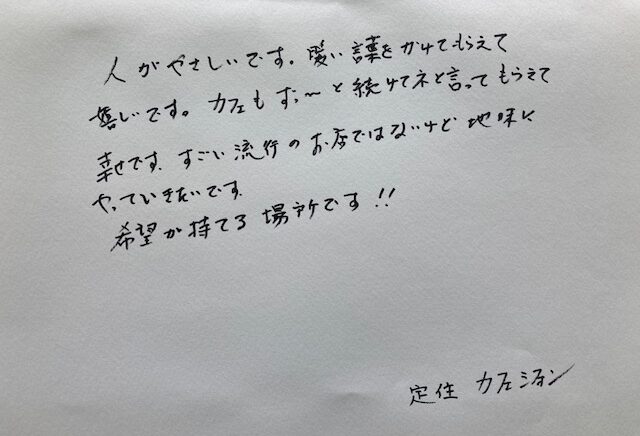 人がやさしいです。暖い言葉をかけてもらえて
嬉しいです。カフェもずっ〜と続けてネと言ってもらえて
幸せです。すごい流行のお店ではないけど地味に
やっていきたいです。
希望が持てる場所です!!
定住 カフェシオン